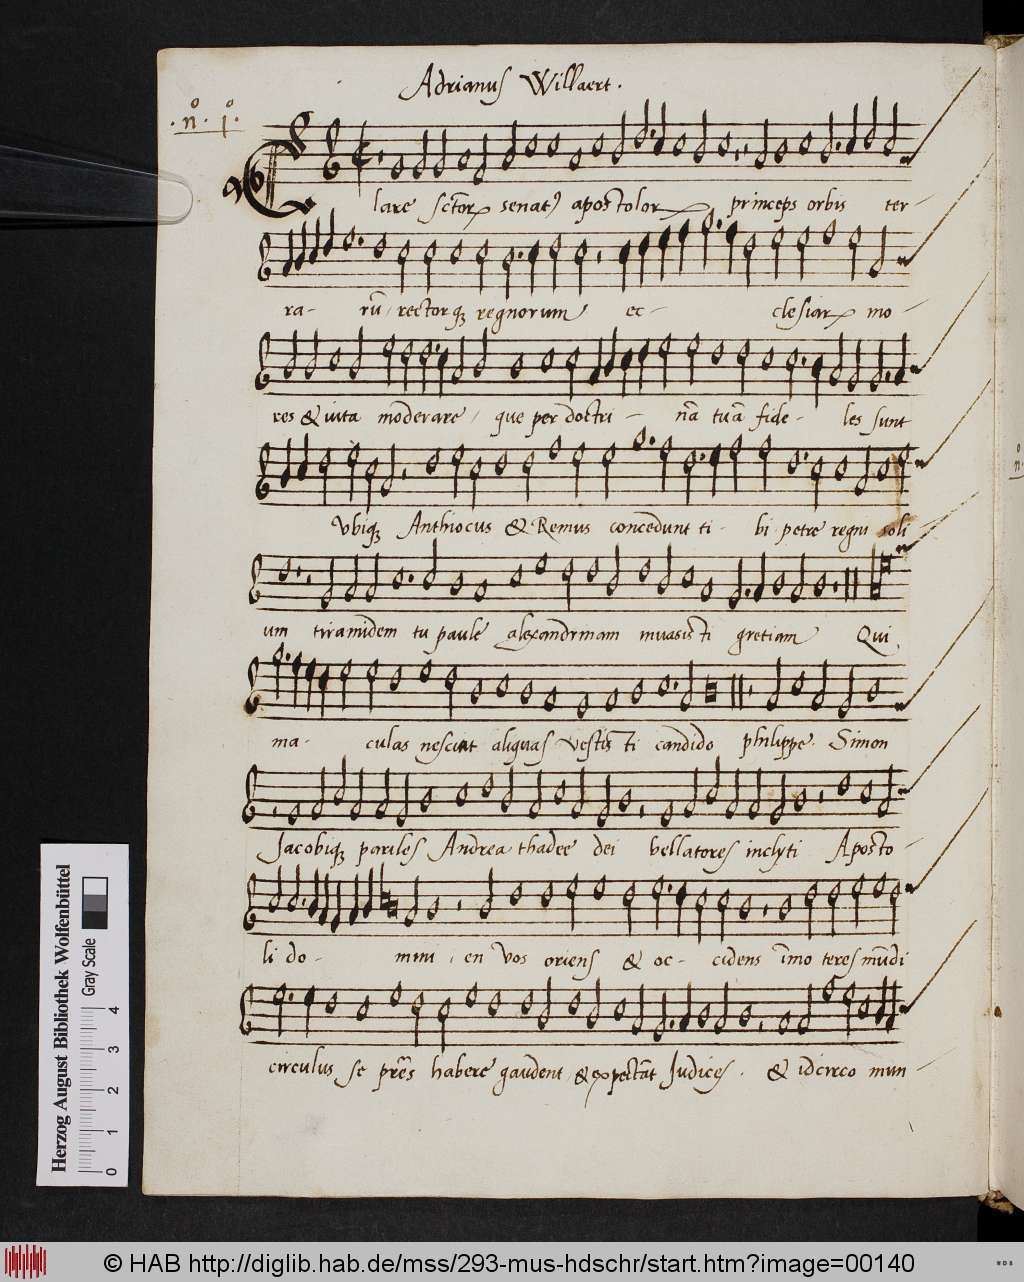 Adrianus Willaert.
.n°. 1°.
Clare sctoꝝ senatꝰ apostoloꝝ princeps orbis ter-
ra- rū rectorqꝫ regnorum ec- clesiaꝝ mo-
res & uita moderare, que per doctri- nā tuā fide- les sunt
Vbiqꝫ Anthiocus & Remus concedunt ti- bi petre regni soli
um tiramidem tu paule alexandrinam inuasisti gretiam Qui
ma- culas nesciūt aliquas vestis ti candido philippe. Simon
Jacobiqꝫ pariles Andrea thadee dei bellatores inclyti Aposto-
li do- mini, en vos oriens & oc- cidens īmo teres mūdi
circulus se prēs habere gaudent, & expectāt Judices. & idcirco mun-
Herzog August Bibliothek Wolfenbüttel
Gray Scale
0 1 2 3 4
© HAB http://diglib.hab.de/mss/293-mus-hdschr/start.htm?image=00140